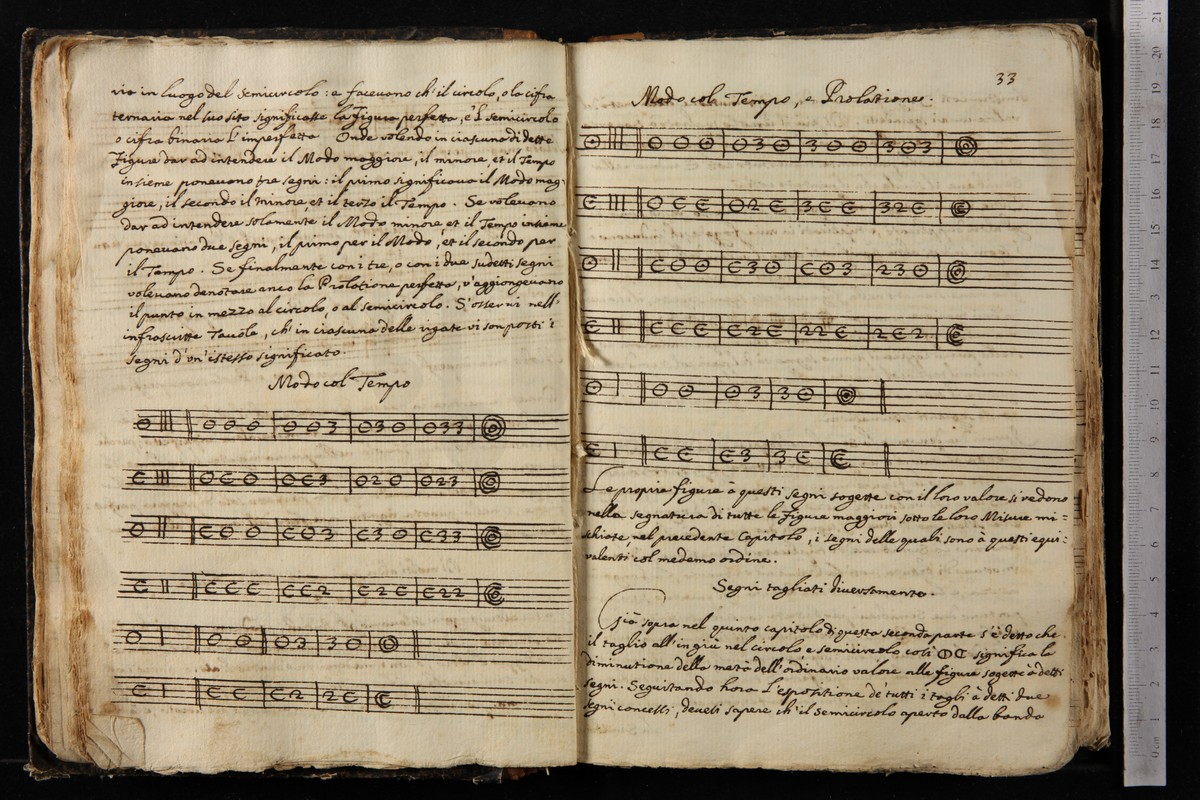 vio in luogo del Semicircolo : e facevano ch'il circolo, o la cifra
ternaria nel suo sito significasse la figura perfetta, e'l Semicircolo
o cifra binaria l'imperfetta Onde volendo in ciascuna di dette
figure dar ad intendere il Modo maggiore, il minore, et il Tempo
insieme ponevano tre segni : il primo significava il Modo mag-
giore, il secondo il minore et il terzo il Tempo. Se volevano
dar ad intendere solamente il Modo minore et il Tempo insieme
ponevano due segni, il primo per il Modo, et il secondo per
il Tempo. Se finalmente con i tre, o con i due sudetti segni
volevano denotare anco la Prolatione perfetta, v'aggiongevano
il punto in mezzo al circolo, o al semicircolo. S'osservi nell'
infrascritte Tavole, ch'in ciascuna delle rigate vi son posti i
segni d'un'istesso significato.
Modo col Tempo
O O O O O O 3 O 3 O O 3 3
O C O O C 3 O 2 O O 2 3
C O O C O 3 C 3 O C 3 3
C C C C C 2 C 2 C C 2 2
O O O 3 3 O
C C C 2 2 C
33
Modo col Tempo, e Prolatione.
Le proprie figure à questi segni sogette con il loro valore si vedono
nella segnatura di tutte le figure maggiori sotto le loro Misure mi-
schiate, nel precedente Capitolo, i segni delle quali sono à questi equi-
valenti col medemo ordine.
Segni tagliati diversamente.
Già sopra nel quinto capitolo di questa seconda parte s'è detto che
il taglio all'in giù nel circolo e semicircolo così significa la
diminutione della metà dell'ordinario valore alle figure sogette à detti
segni. Seguitando hora l'espositione de tutti i tagli à detti due
segni concessi, deveti sapere ch'il Semicircolo aperto dalla banda